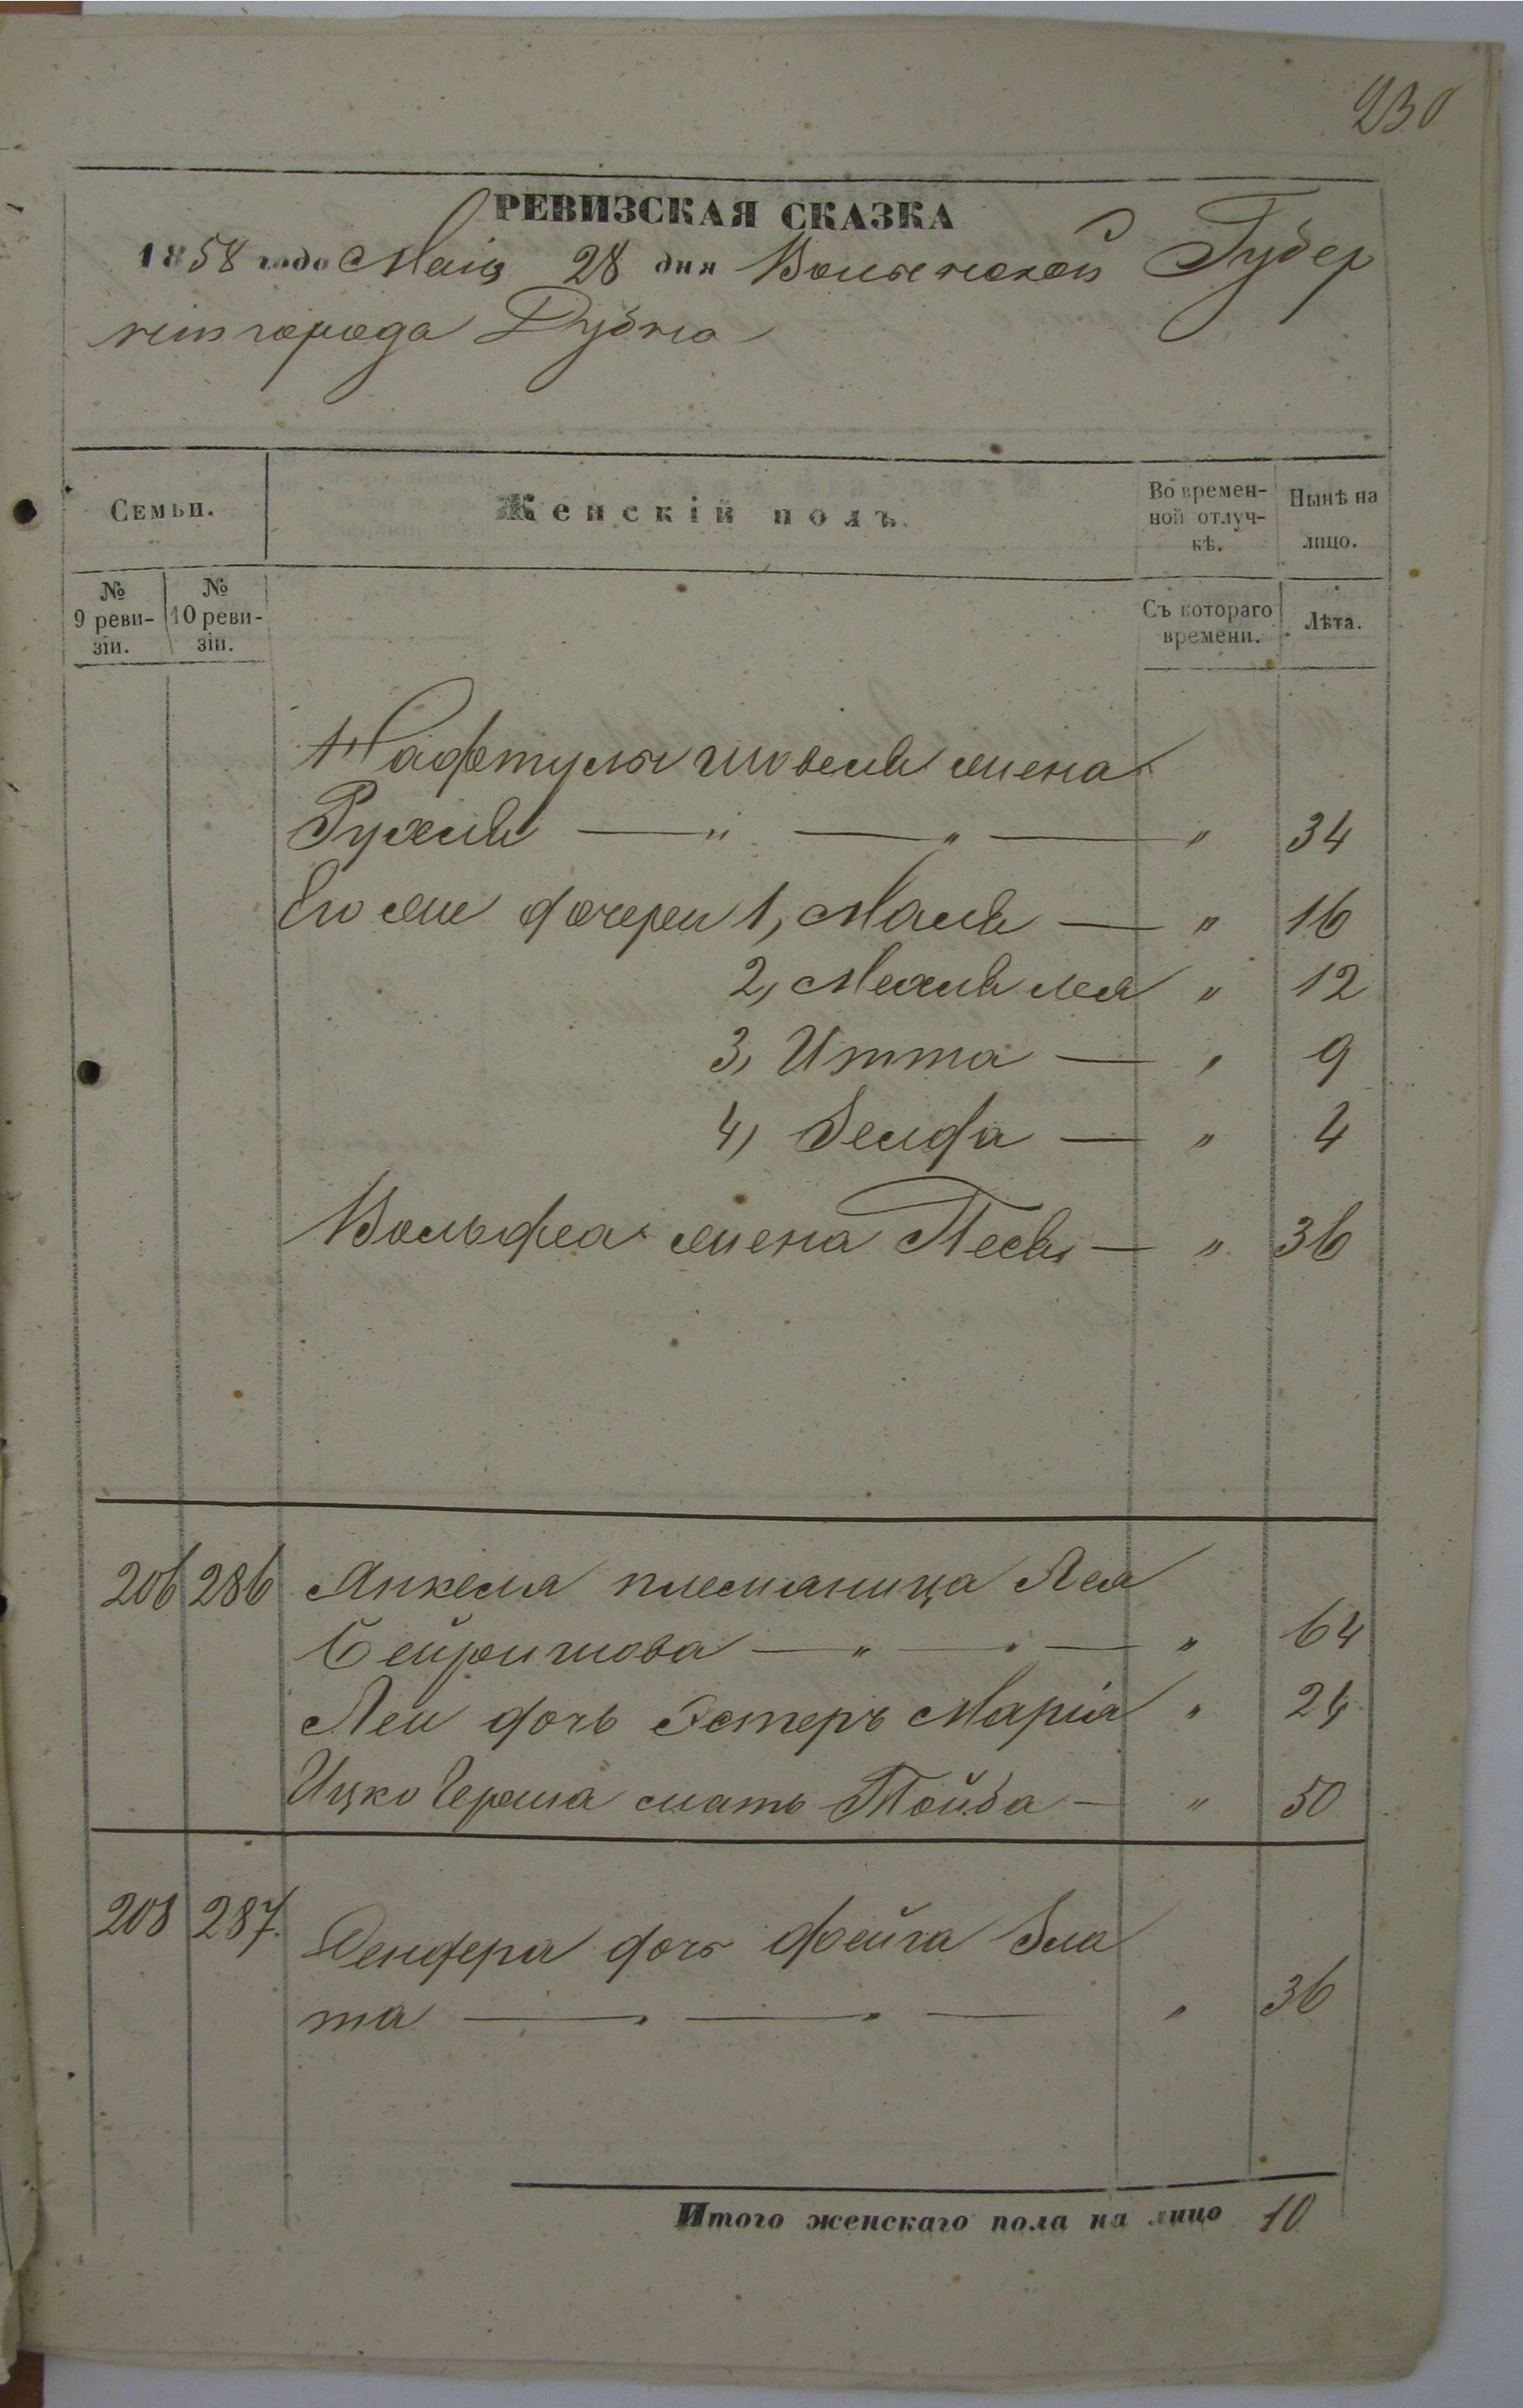 230
РЕВИЗСКАЯ СКАЗКА
1858 года Маія 28 дня Волынской Губер
ніи города Дубно
Семьи.
Женскій полъ.
Во времен-
ной отлуч-
кѣ.
Нынѣ на
лицо.
№
9 реви-
зіи.
№
10 реви-
зіи.
Съ котораго
времени.
Лѣта.
Нафтулы жена
Рухля — " — " — " 34
Его же дочери 1, Маля — " 16
2, Лея " 12
3, Итта — " 9
4, Зелда — " 4
Вольфа жена Песя — " 36
206 286 Янкеля племяница Лея
Бейришова — " — " — " 64
Леи дочь Эстеръ Марія " 24
Ицко Герша мать Тойба — " 50
208 287. Сендера дочь Фейга Зла
та — " — " — " 36
Итого женскаго пола на лицо 10